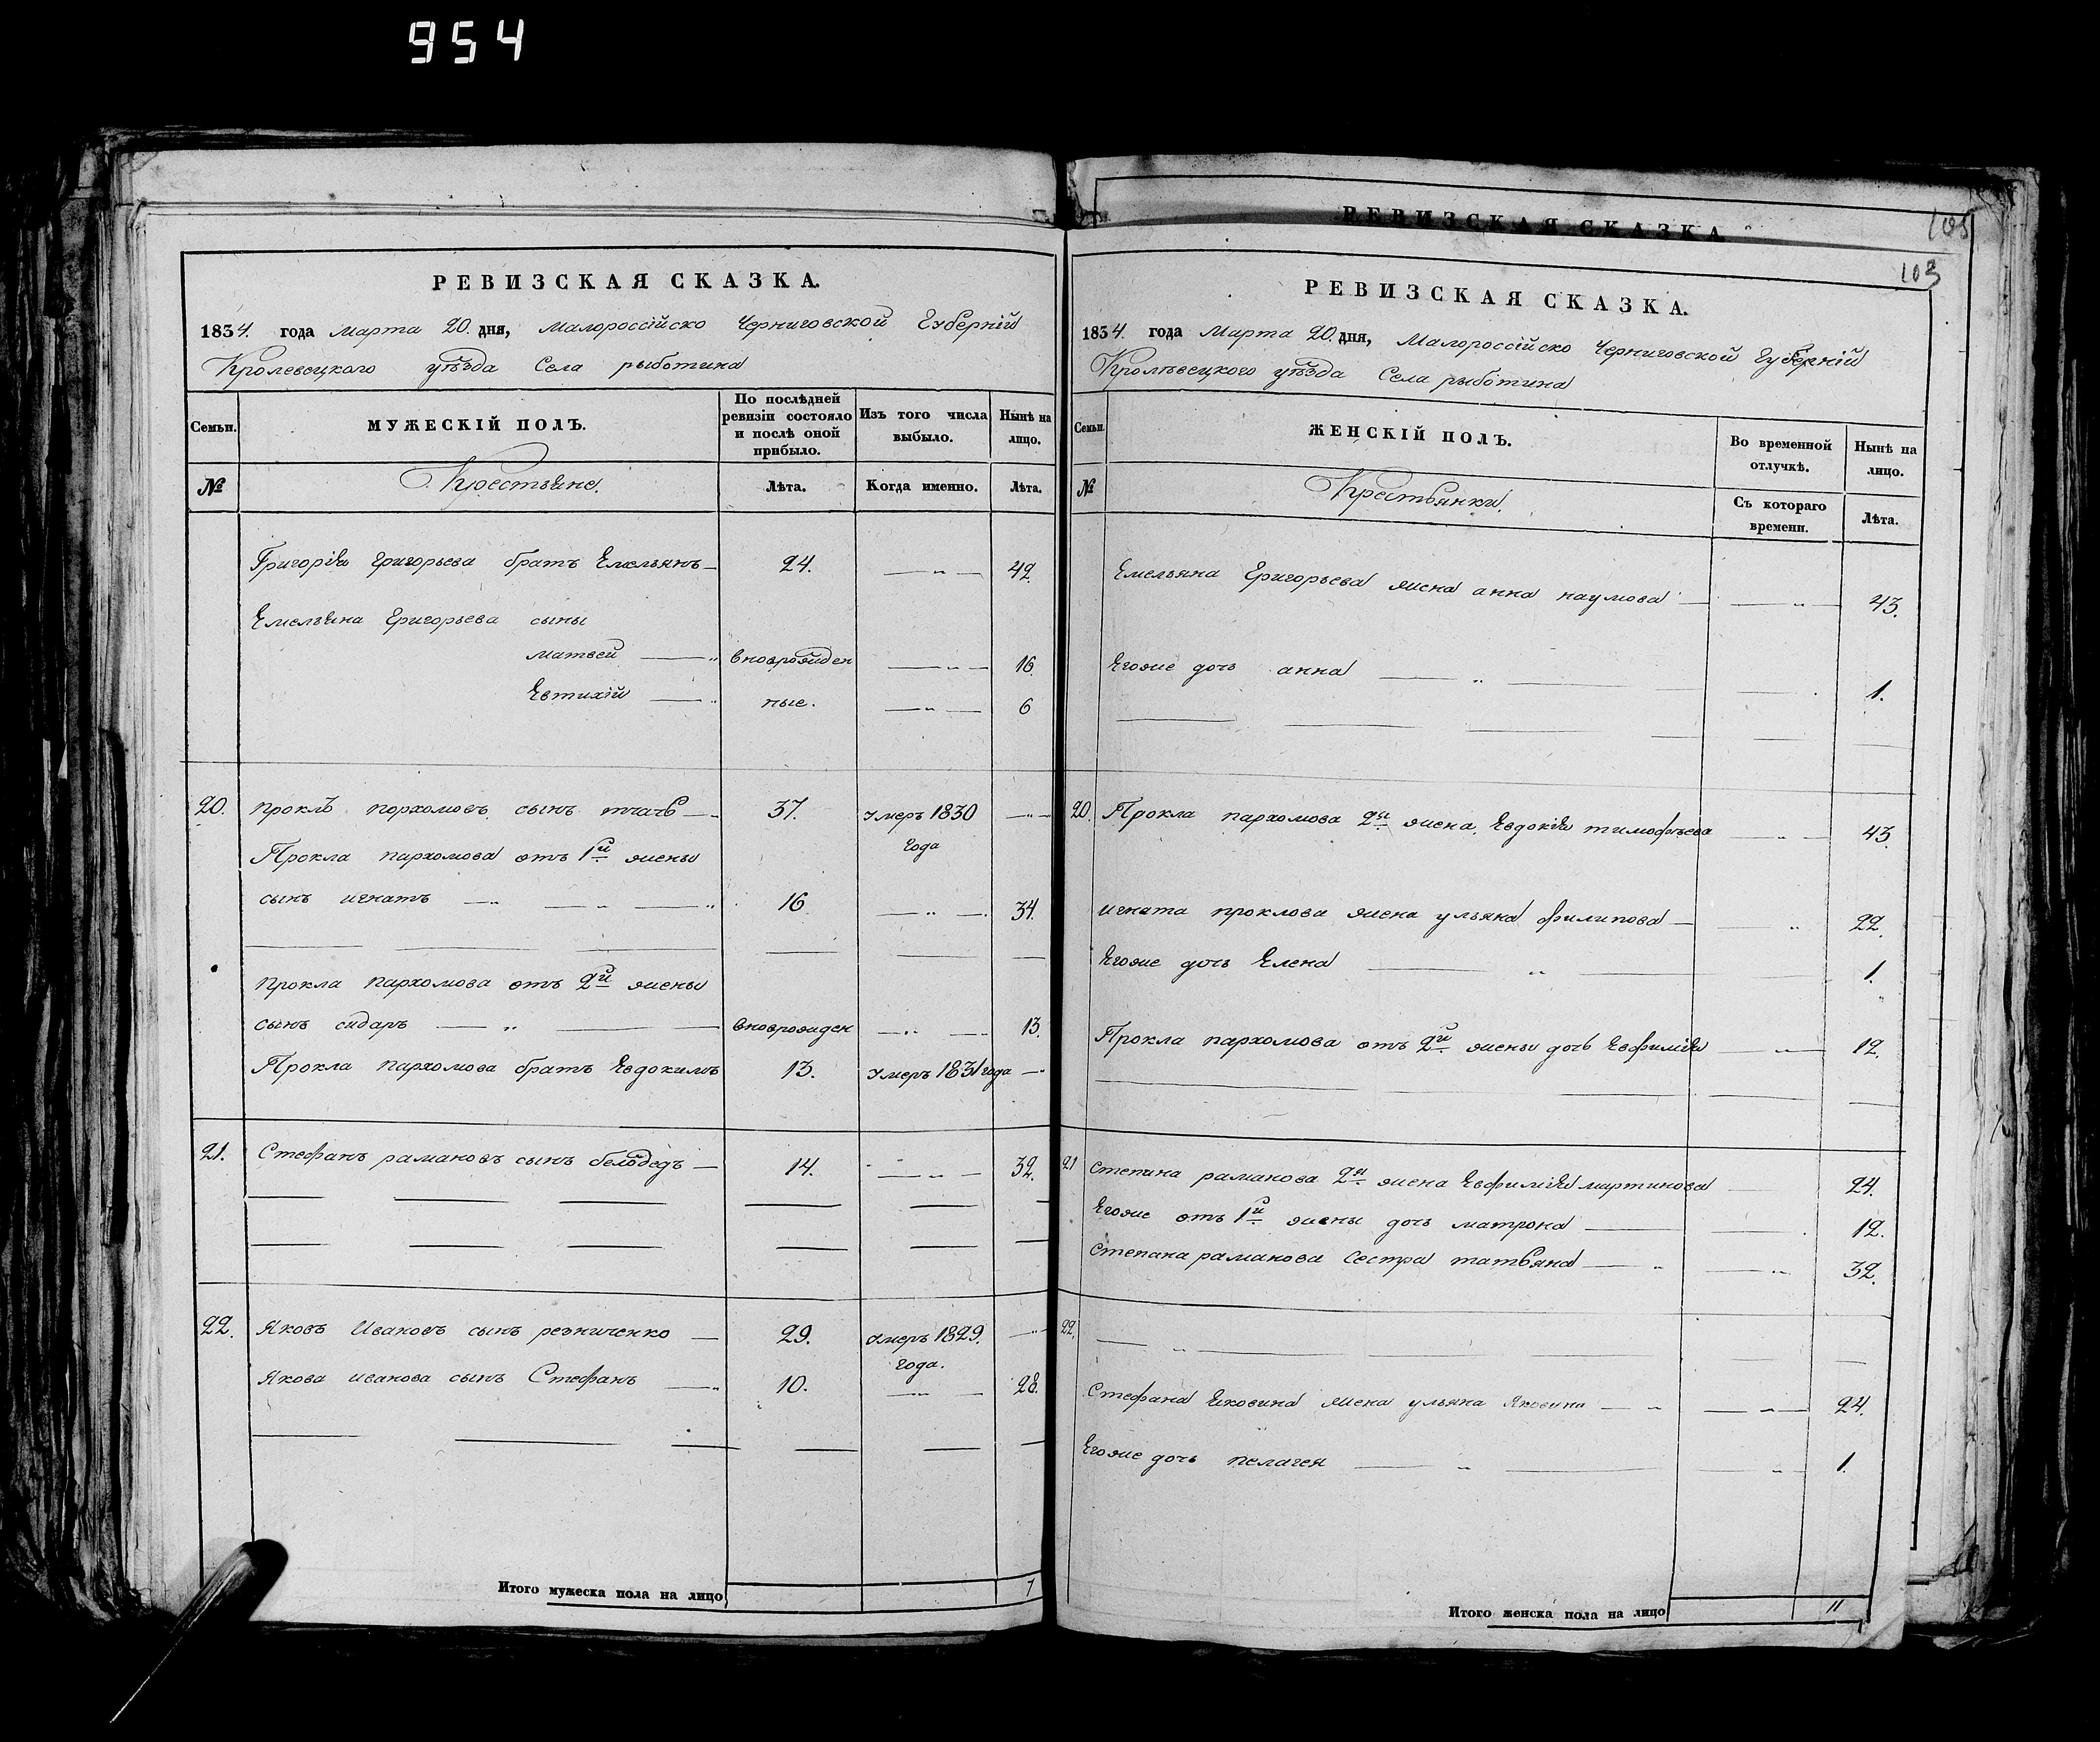 954
РЕВИЗСКАЯ СКАЗКА.
1834. года марта 20. дня, Малороссійско Черниговской Губерніи
Кролевецкого уѣзда Села рыботина
Семьи.
МУЖЕСКІЙ ПОЛЪ.
По послѣдней ревизіи состояло и послѣ оной прибыло.
Изъ того числа выбыло.
Нынѣ на лицо.
№
Крестьяне.
Лѣта.
Когда именно.
Лѣта.
Григорія григорьева братъ Емельянъ 24. 42.
Емельяна Григорьева сыны
матвей вноврожден 16.
Евтихій ные. 6
20. прокл пархомовъ сынъ 37. умеръ 1830 года
Прокла пархомова отъ 1й жены
сынъ игнатъ 16. 34.
прокла пархомова отъ 2й жены
сынъ сидаръ вноврожден 13.
Прокла пархомова братъ Евдокимъ 13. умеръ 1831 года
21. Стефанъ рамановъ сынъ белодедъ 14. 32.
22. Яковъ Ивановъ сынъ резниченко 29. умеръ 1829. года.
Якова иванова сынъ Стефанъ 10. 28.
Итого мужеска пола на лицо 7
РЕВИЗСКАЯ СКАЗКА
105
103
РЕВИЗСКАЯ СКАЗКА.
1834. года Марта 20. дня, Малороссійско Черниговской Губерніи
Кролѣвецкого уѣзда Села рыботина
Семьи.
ЖЕНСКІЙ ПОЛЪ.
Во временной отлучкѣ.
Нынѣ на лицо.
№
Крестьянки.
Съ котораго времени.
Лѣта.
Емельяна Григорьева жена анна наумова 43.
Егоже дочь анна 1.
20. Прокла пархомова 2я жена Евдокія тимофеева 43.
игната проклова жена ульяна филипова 22.
Егоже дочь Елена 1.
Прокла пархомова отъ 2й жены дочь Евфимія 12.
21 степана раманова 2я жена Евфимія мартинова 24.
Егоже отъ 1й жены дочь матрона 12.
степана раманова сестра татьяна 32.
22.
Стефана яковина жена ульяна яковина 24.
Егоже дочь пелагея 1.
Итого женска пола на лицо 11